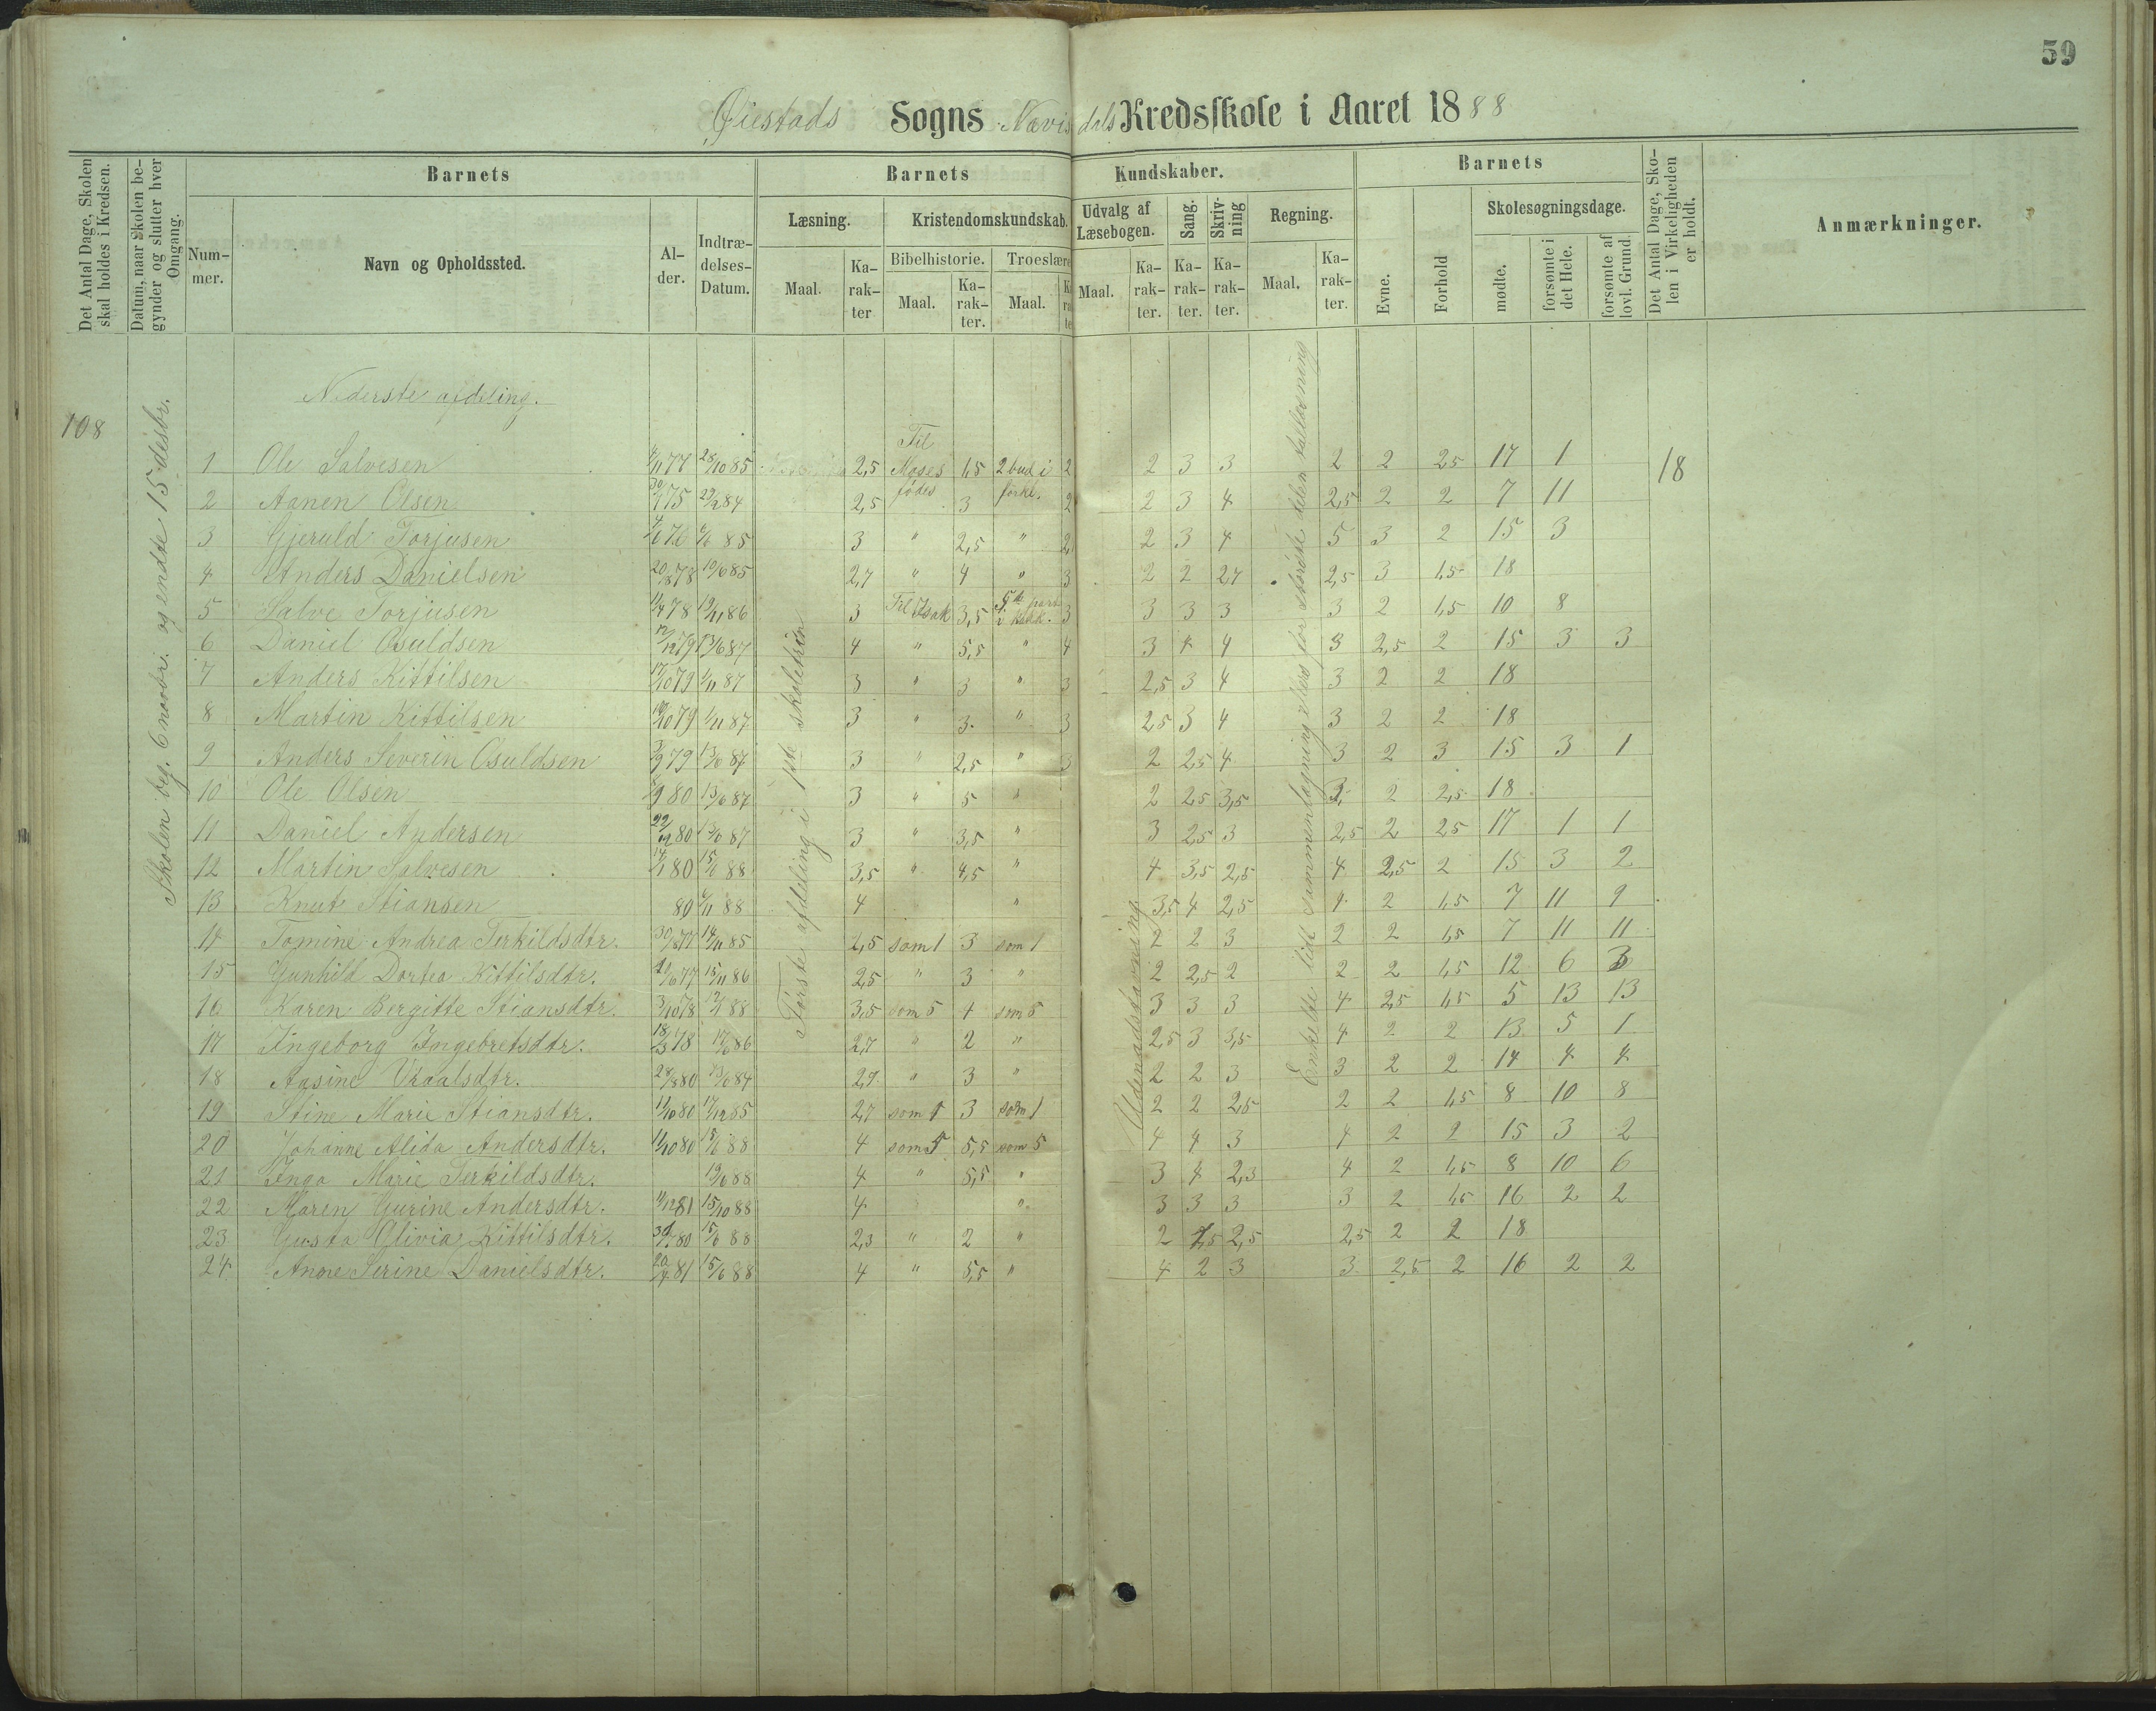 59
Øiestads Sogns Nævisdals Kredsskole i Aaret 1888
Det Antal Dage, Skolen skal holdes i Kredsen.
Datum, naar Skolen begynder og slutter hver Omgang.
Barnets
Nummer.
Navn og Opholdssted.
Alder.
Indtrædelses-Datum.
Barnets Kundskaber.
Læsning.
Maal.
Karakter
Kristendomskundskab.
Bibelhistorie.
Maal.
Karakter.
Troeslære
Maal.
Udvalg af Læsebogen.
Maal.
Karakter.
Sang.
Karakter.
Skrivning
Karakter.
Regning.
Maal.
Karakter.
Barnets
Evne.
Forhold
Skolesøgningsdage.
mødte.
forsømte i det Hele.
forsømte af lovl. Grund.
Det Antal Dage, Skolen i Virkeligheden er holdt.
Anmærkninger.
108
Skolen beg. 6 novbr. og endte 15 desbr.
Nederste afdeling.
Første afdeling i 1ste skoletrin
Udenadsstavning
Enkelte lidt sammenlægning ellers for største delen tallæsning
18
1 Ole Salvesen 77 28/10 85 2,5 Til Moses fødes 1,5 2 bud i forkl. 2 2 3 3 2 2 2,5 17 1
2 Aanen Olsen 75 84 2,5 3 2 2 3 4 2,5 2 2 7 11
3 Gjeruld Torjusen 76 85 3 " 2,5 " 2 3 4 5 3 2 15 3
4 Anders Danielsen 20/8 78 19/6 85 2,7 " 4 " 3 2 2 2,7 2,5 3 1,5 18
5 Salve Torjusen 11/4 78 19/11 86 3 Til Isak 3,5 5te part i kat. 3 3 3 3 3 2 1,5 10 8
6 Daniel Osuldsen 79 13/6 87 4 " 5,5 " 4 3 4 4 3 2,5 2 15 3 3
7 Anders Kittilsen 17/10 79 1/11 87 3 " 3 " 3 2,5 3 4 3 2 2 18
8 Martin Kittilsen 79 1/11 87 3 " 3 " 3 2,5 3 4 3 2 2 18
9 Anders Severin Osuldsen 3/9 79 13/6 87 3 " 2,5 " 3 2 2,5 4 3 2 3 15 3 1
10 Ole Olsen 80 13/6 87 3 " 5 " 2 2,5 3,5 3 2 2,5 18
11 Daniel Andersen 80 13/6 87 3 " 3,5 " 3 2,5 3 2,5 2 2,5 17 1 1
12 Martin Salvesen 14/1 80 15/6 88 3,5 " 4,5 " 4 3,5 2,5 4 2,5 2 15 3 2
13 Knut Stiansen 80 6/11 88 4 " 3,5 4 2,5 4 2 1,5 7 11 9
14 Tomine Andrea Terkildsdtr. 30/8 77 14/11 85 2,5 som 1 3 som 1 2 2 3 2 2 1,5 7 11 11
15 Gunhild Dortea Kittilsdtr. 77 15/11 86 2,5 " 3 " 2 2,5 2 2 2 1,5 12 6 3
16 Karen Bergitte Stiansdtr. 3/10 78 88 3,5 som 5 4 som 5 3 3 3 4 2,5 1,5 5 13 13
17 Ingeborg Ingebretsdtr. 18/3 78 86 2,7 " 2 " 2,5 3 3,5 4 2 2 13 5 1
18 Aasine Vraalsdtr. 28/8 80 87 2,9 " 3 " 2 2 3 3 2 2 14 4 4
19 Stine Marie Stiansdtr. 11/10 80 17/12 85 2,7 som 1 3 som 1 2 2 2,5 2 2 1,5 8 10 8
20 Johanne Alida Andersdtr. 11/10 80 15/6 88 4 som 5 5,5 som 5 4 4 3 4 2 2 15 3 2
21 Inga Marie Terkildsdtr. 19/6 88 4 " 5,5 " 3 4 2,3 4 2 1,5 8 10 6
22 Maren Gurine Andersdtr. 81 15/10 88 4 " 3 3 3 3 2 1,5 16 2 2
23 Gusta Olivia Kittilsdtr. 80 15/6 88 2,3 " 2 " 2 1,5 2,5 2,5 2 2 18
24 Anne Serine Danielsdtr. 20/9 81 15/6 88 4 " 5,5 " 4 2 3 3 2,5 2 16 2 2